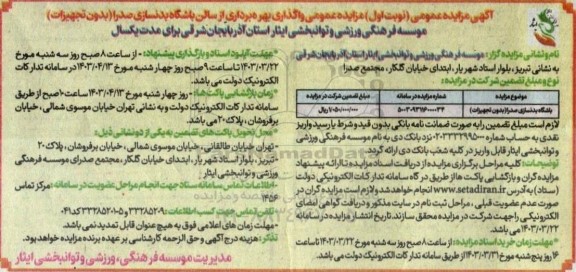 آگهی مزایده عمومی (نوبت اول) مزایده عمومی واگذاری بهره برداری از سالن باشگاه بدنسازی صدرا (بدون تجهیزات)
موسسه فرهنگی ورزشی و توانبخشی ایثار استان آذربایجان شرقی برای مدت یکسال
نام و نشانی مزایده گزار: موسسه فرهنگی ورزشی و توانبخشی ایثار استان آذربایجان شرقی
به نشانی تبریز، بلوار استاد شهریار، ابتدای خیابان گلکار، مجتمع صدرا
نوع و مبلغ تضمین شرکت در مزایده:
موضوع مزایده
شماره مزایده در سامانه
مبلغ تضمین شرکت در مزایده
باشگاه بدنسازی صدرا (بدون تجهیزات)
لازم است مبلغ تضمین رابه صورت ضمانت نامه بانکی بدون قید و شرط یا رسید واریز
نقدی به حساب شماره نزد بانک دی به نام موسسه فرهنگی ورزشی
و توانبخشی ایثار قابل واریز در کلیه شعب بانک دی ارائه گردد.
توضیحات: کلیه مراحل برگزاری مزایده از دریافت اسناد مزایده تا ارائه پیشنهاد
مزایده گران و بازگشایی پاکت ها از طریق درگاه سامانه تدارکات الکترونیکی دولت
(ستاد) به آدرس www.setadiran.ir انجام خواهد شد و لازم است مزایده گران در
صورت عدم عضویت قبلی، مراحل ثبت نام در سایت مذکور و دریافت گواهی امضای
الکترونیکی را جهت شرکت در مزایده محقق سازند. تاریخ انتشار مزایده در سامانه
۱۴۰۳/۰۳/۲۲ می باشد.
مهلت زمان خرید اسناد مزایده: از ساعت ۸ صبح روز سه شنبه مورخ ۱۴۰۳/۰۳/۲۲ تا ساعت
۱۶ روز پنج شنبه مورخ ۱۴۰۳/۰۳/۳۱ از طریق سامانه تدارکات الکترونیک دولت می باشد.
مهلت آپلود اسناد و بارگذاری پیشنهاد: - از ساعت ۸ صبح روز سه شنبه مورخ
۱۴۰۳/۰۳/۲۲ تا ساعت ۹ صبح روز چهارشنبه مورخ ۱۴۰۳/۰۴/۱۳ در سامانه تدارکات
الکترونیک دولت می باشد.
زمان بازگشایی پاکت ها: روز چهارشنبه مورخ ۱۴۰۳/۰۴/۱۳ ساعت ۱۰ صبح از طریق
سامانه تدارکات الکترونیک دولت و به نشانی تهران خیابان موسوی شمالی، خیابان
پرفروشان، پلاک ۲۰ می باشد.
محل تحویل پاکت های تضمین به یکی از دو نشانی ذیل:
- تهران، خیابان طالقانی، خیابان موسوی شمالی، خیابان پرفروشان، پلاک ۲۰
- تبریز، بلوار استاد شهریار، ابتدای خیابان گلکار، مجتمع صدرای موسسه فرهنگی
ورزشی و توانبخشی ایثار
- اطلاعات تماس سامانه ستاد جهت انجام مراحل عضویت در سامانه: مرکز تماس
تلفن تماس جهت کسب اطلاعات: ۳۳۲۸۵۲۰۹ و ۳۳۲۸۵۲۰۵ کد ۰۴۱
- مهلت زمان های اعلامی فوق به هیچ عنوان قابل تمدید نمی باشد.
تذکر: هزینه درج آگهی و حق الزحمه کارشناسی بر عهده برنده مزایده خواهد بود.
مدیریت موسسه فرهنگی، ورزشی و توانبخشی ایثار